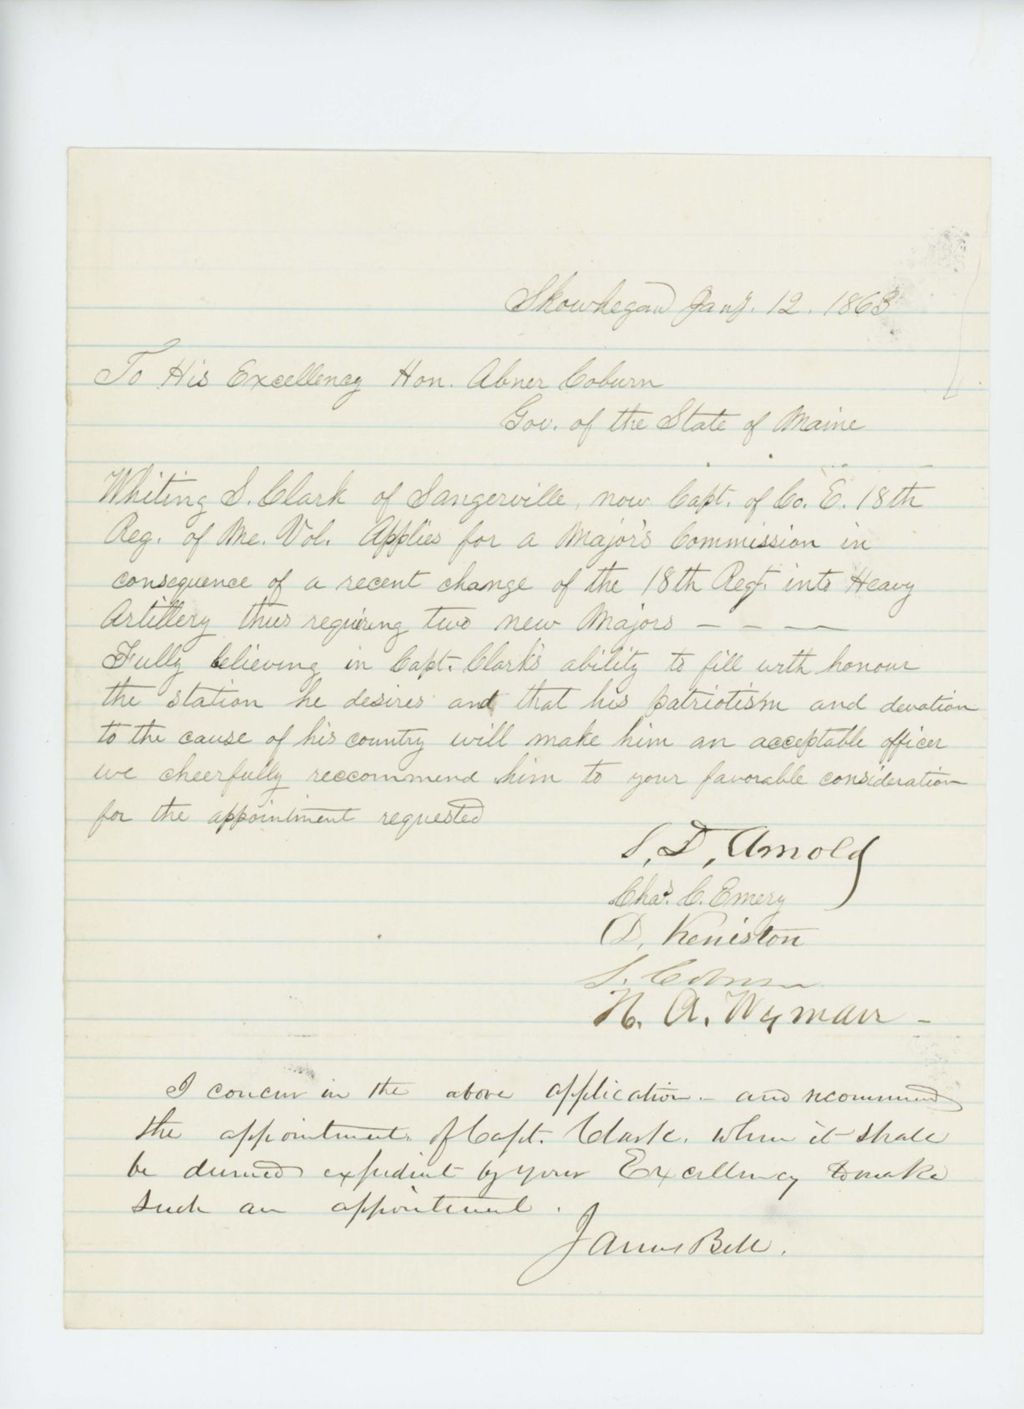 Skowhegan Jany. 12. 1863
To His Excellency Hon. Abner Coburn
Gov. of the State of Maine
Whiting S. Clark of Sangerville, now Capt. of Co. E. 18th
Reg. of Me. Vol. Applies for a Major's Commission in
consequence of a recent change of the 18th Regt. into Heavy
Artillery thus requiring two new Majors – – – –
Fully believing in Capt. Clark's ability to fill with honour
the station he desires and that his patriotism and devotion
to the cause of his country will make him an acceptable officer
we cheerfully reccommend him to your favorable consideration
for the appointment requested
S. D. Arnold
Chas. C. Emery
D. Keniston
S. Coburn
N. A. Wyman –
I concur in the above application – and recommend
the appointment of Capt. Clark. when it shall
be deemed expedient by your Excellency to make
such an appointment.
James Bell.